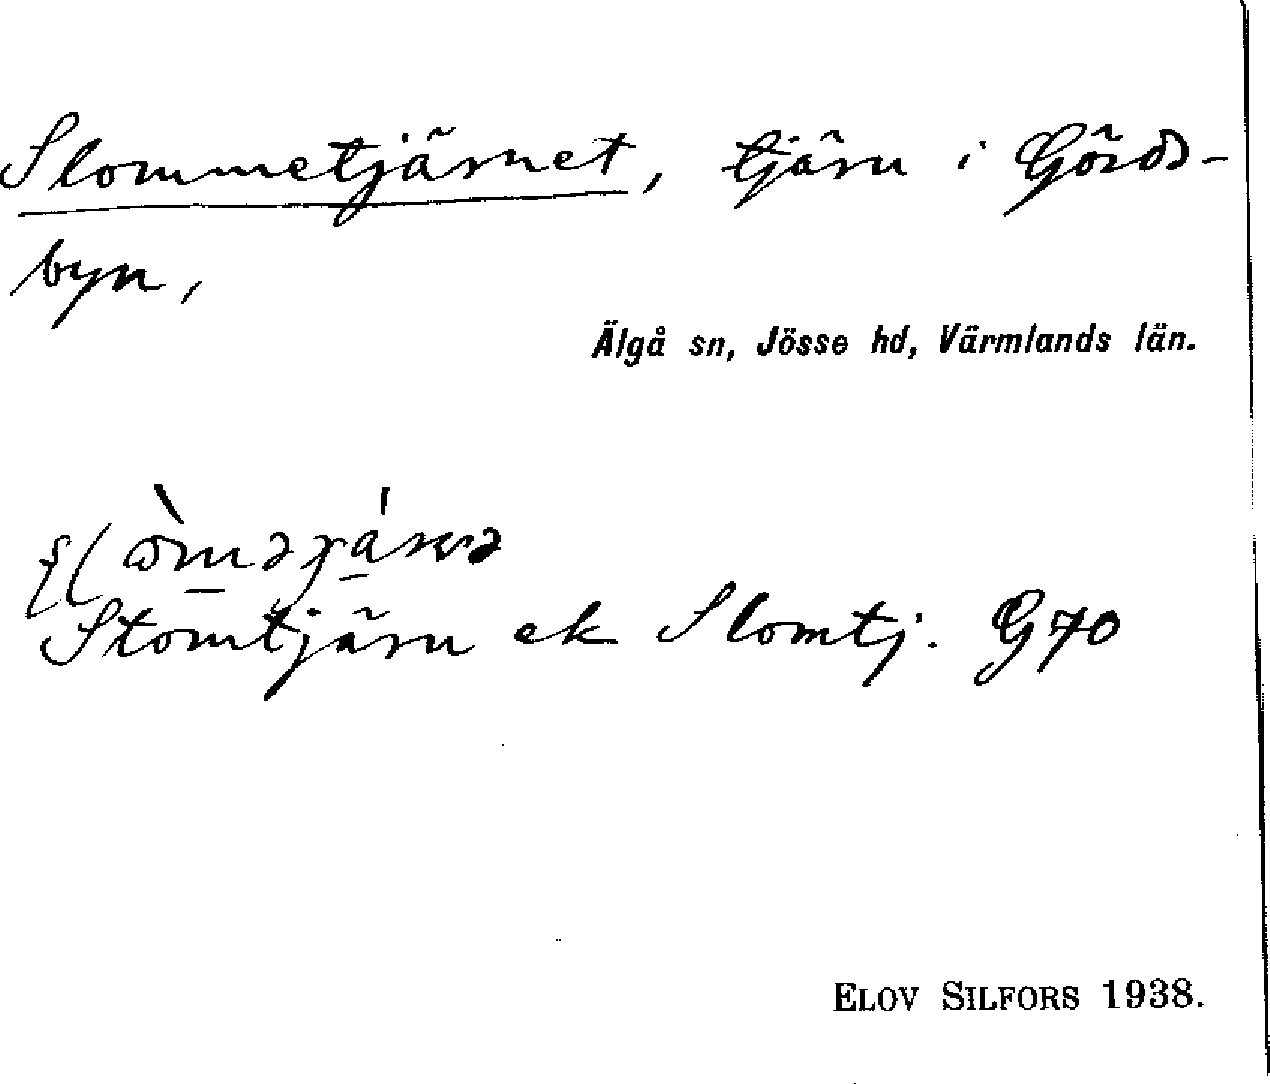 Slommetjärnet, tjärn i Görds-
byn,
Älgå sn, Jösse hd, Värmlands län.
Stomtjärn ek Slomtj. G70
ELOV SILFORS 1938.